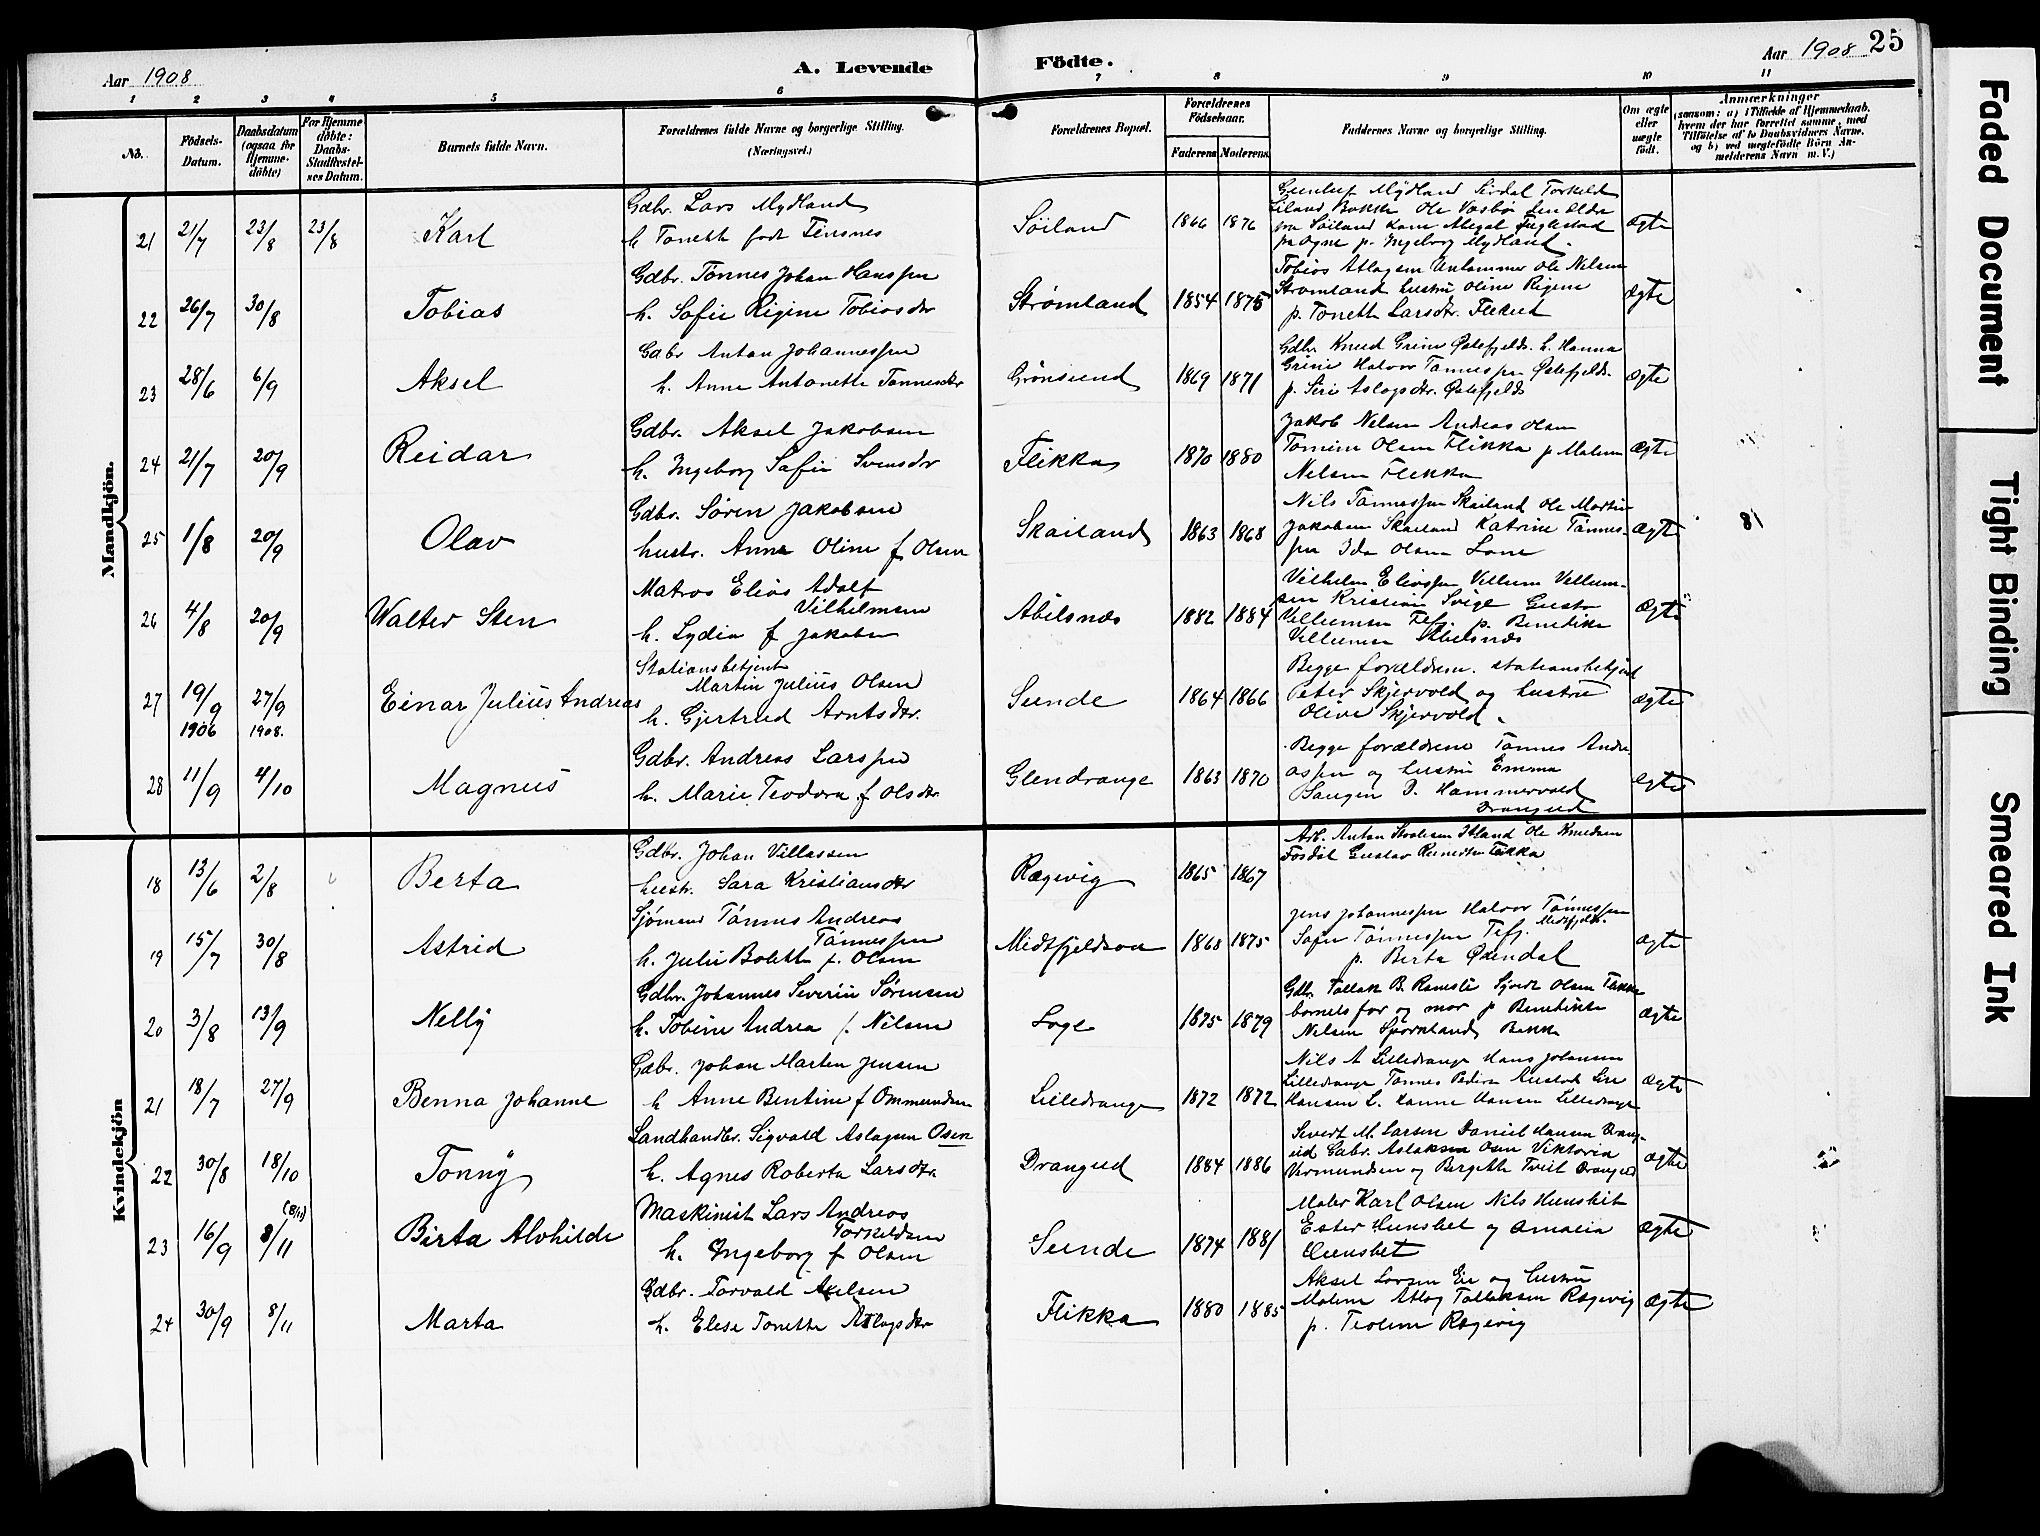 Aar 1908
A. Levende
Födte.
Aar 1908
25
1 2 3 4 5 6 7 8 9 10 11
No.
Födsels-
Datum.
Daabsdatum
(ogsaa for
Hjemme-
döbte)
For Hjemme
döbte:
Daabs-
Stadfæstel-
ses Datum.
Barnets fulde Navn.
Forældrenes fulde Navne og borgerlige Stilling.
(Næringsvei.)
Forældrenes Bopæl.
Forældrenes
Födselsaar.
Faderens
Moderens.
Faddernes Navne og borgerlige Stilling.
Om ægte
eller
uægte
födt.
Anmærkninger
(saasom: a) i Tilfælde af Hjemmedaab,
hvem der har forrettet samme, med
Tilföielse af to Daabsvidners Navne,
og b) ved uægtefödte Börn An-
melderens Navn m. V.)
Mandkjön.
21 21/7 23/8 23/8 Karl
Gdbr. Lars Mydland
h Tonette født
Söiland 1866 1876
Gunluf Mydland Sirdal Torkild
p. Ingeborg Mydland.
ægte
22 26/7 30/8 Tobias
Gdbr. Tönnes Johan Hanssen
h. Sofie Rigine Tobiasdtr
Strömland 1854 1875
Tobias Atlagsen Ole Nilsen
Strömland hustru Oline Rigine
p. Tonette Larsdtr. Flikka
ægte
23 28/6 6/9 Aksel
Gdbr Anton Johannessen
h. Anne Antonette Tönnesdtr
Grönsund 1869 1871
Gdbr Knud Grim Østefjeld. h. Hanna
Grini Halvor Tönnessen Østefjeld.
p. Siri Aslagsdtr. Østefjeld
ægte
24 21/7 20/9 Reidar
Gdbr. Aksel Jakobsen
h. Ingeborg Sofie Svensdtr
Flikka 1870 1880
Jakob Nilsen Andreas Olsen
Tomine Olsen Flikka p Malene
Nilsen Flikka
ægte
25 1/8 20/9 Olav
Gdbr. Sören Jakobsen
hustr. Anne Oline f Olsen
Skailand 1863 1868
Nils Tönnessen Skailand Ole Martin
Jakobsen Skailand Katrine Tönnes-
sen Ida Olsen Lone
ægte
81
26 4/8 20/9 Walter Sten
Matros Elias Adolf
Vilhelmsen
h. Lydia f Jakobsen
Abilsnæs 1882 1884
Vilhelm Eliassen Villum Villum-
sen Kristian Svige Gusta
Villumsen Fefj. p. Benedikte
Villumsen Abelsnæs
ægte
27 19/9 1906 27/9 1908. Einar Julius Andreas
Stationsbetjent
Martin Julius Olsen
h. Gjertrud Arntsdtr.
Sunde 1864 1866
Begge forældrene. Stationsbetjent
Peter Skjervold og hustru
Olive Skjervold.
ægte
28 11/9 4/10 Magnus
Gdbr. Andreas Larssen
h. Marie Teodora f Olsdtr
Glendrange 1863 1870
Begge forældrene Tönnes Andre-
assen og hustru Emma
Hammervold
Drangud
ægte
Kvindekjön
18 13/6 2/8 Berta
Gdbr. Johan Villassen
hustr. Sara Kristiansdtr
Rægevig 1865 1867
Arb. Anton
Gustav
19 15/7 30/8 Astrid
Sjömand Tönnes Andreas
Tönnessen
h. Julie Bolette f. Olsen
Midtfjeldsaa 1863 1875
Jens Johannessen Halvor Tönnessen
Midtfjelds.
Sofie Tönnessen Fefj.
p. Berta Ødendal
ægte
20 3/8 13/9 Nelly
Gdbr. Johannes Severin Sörensen
h. Tobine Andrea f. Nilsen
Loge 1875 1879
Gdbr Tallak B. Ramsli Sjovt Olsen Flikka
barnets far og mor p Benedikte
Nilsen Bakke
ægte
21 18/7 27/9 Benna Johanne
Gdbr. Johan Martin Jensen
h Anne Bentine f Ommundsen
Lilledrange 1872 1872
Nils A Lilledrange Hans Johansen
Lilledrange Tönnes Austad
Hansen L. Hanne Hansen Lilledrange
ægte
22 30/8 18/10 Tonny
Landhandler. Sigvald Aslagsen Osen
h. Agnes Roberta Larsdtr.
Drangud 1884 1886
Sivert M. Larsen Daniel Hansen Drang-
ud Gabr. Aslaksen Osen Viktoria
Vermundsen og Bergette Tveit Drangud
ægte
23 16/9 8/11 (8/11) Birta Alvhilde
Maskinist Lars Andreas
Torkildsen
h. Ingeborg f Olsen
Sunde 1874 1881
Maler Karl Olsen Nils Hunsbet
Ester Hunsbet og Amalia
Hunsbet
ægte
24 30/9 8/11 Marta
Gdbr. Torvald Axelsen
h. Elise Tonette Atlagsdtr
Flikka 1880 1885
Aksel Larsen Eie og hustru
Malene Atlag Tallaksen Rægevig
p. Teoline Rægevig
ægte
Faded Document
Tight Binding
Smeared Ink